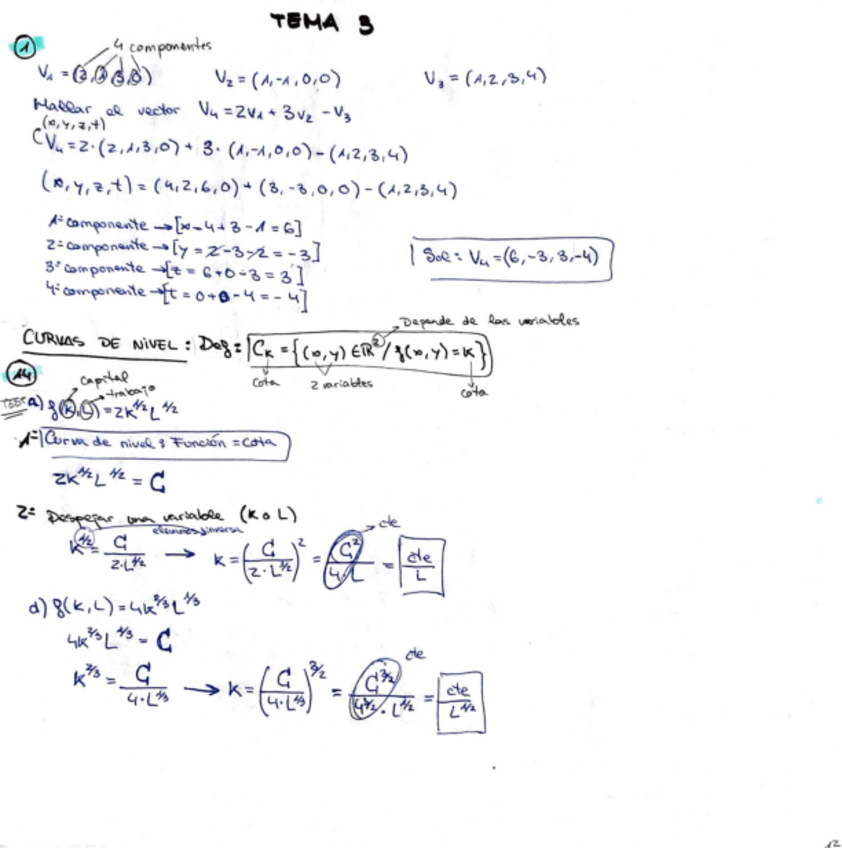 TEMA 3
1
4 componentes
V₁ = (2,1,3,0) V₂ = (1,-1,0,0) V₃ = (1,2,3,4)
Hallar el vector V₄ = 2V₁ + 3V₂ - V₃
(x,y,z,t)
V₄ = 2·(2,1,3,0) + 3·(1,-1,0,0) - (1,2,3,4)
(x,y,z,t) = (4,2,6,0) + (3,-3,0,0) - (1,2,3,4)
1ª componente → [x = 4+3-1 = 6]
2ª componente → [y = 2-3-2 = -3]
3ª componente → [z = 6+0-3 = 3]
4ª componente → [t = 0+0-4 = -4]
Sol: V₄ = (6,-3,3,-4)
Depende de las variables
CURVAS DE NIVEL: Def: C_K = {(x,y) ∈ ℝ² / f(x,y) = K}
cota 2 variables cota
14
capital
trabajo
a) f(K,L) = 2K^1/2 L^1/2
1º Curva de nivel: Función = cota
2K^1/2 L^1/2 = C
2º Despejar una variable (K o L)
K^1/2 = C / 2·L^1/2 → K = (C / 2·L^1/2)^2 = C^2 / 4·L = cte / L
cte
d) f(K,L) = 4K^2/3 L^1/3
4K^2/3 L^1/3 = C
K^2/3 = C / 4·L^1/3 → K = (C / 4·L^1/3)^3/2 = C^3/2 / 4^3/2 · L^1/2 = cte / L^1/2
cte
12